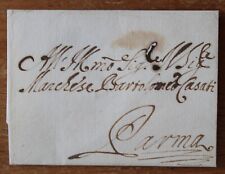 All' Ill.mo Sig.r
Marchese Bartolomeo Casati
Parma